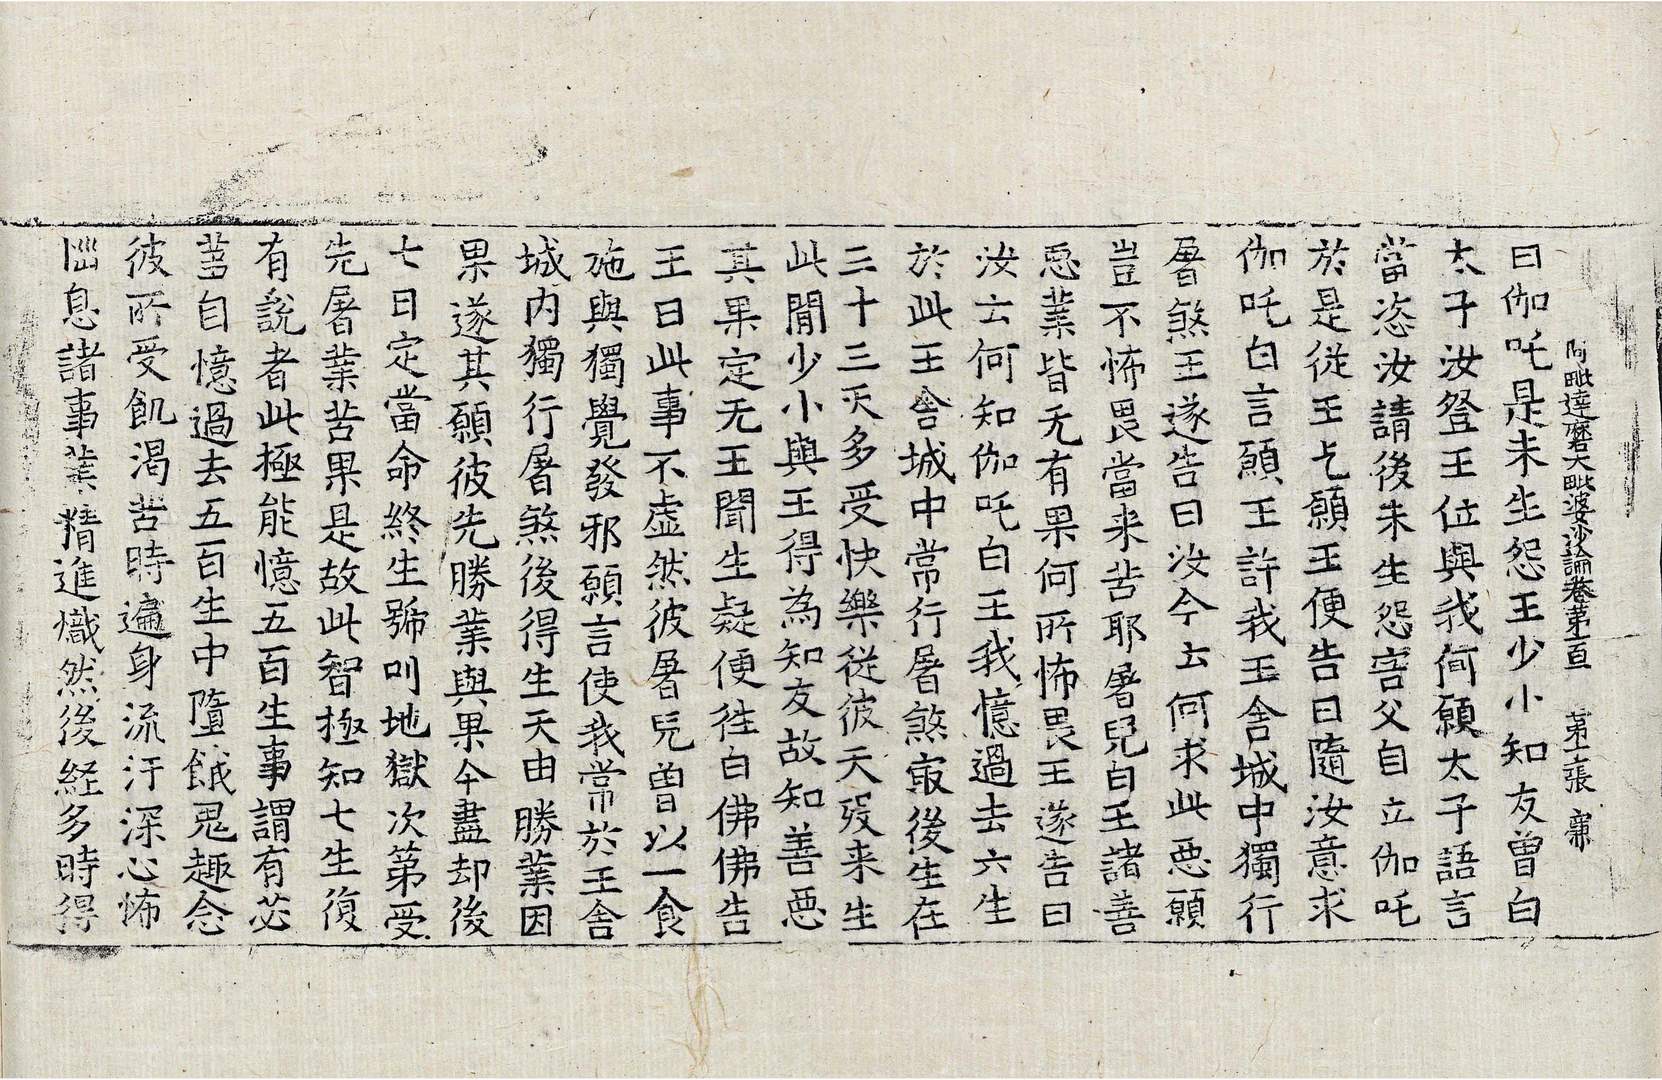 阿毗達磨大毗婆沙論卷第一百　第十一張　弼
曰伽吒是未生怨王少小知友曾白
太子汝登王位與我何願太子語言
當恣汝請後未生怨害父自立伽吒
於是從王乞願王便告曰隨汝意求
伽吒白言願王許我王舍城中獨行
屠煞王遂告曰汝今云何求此惡願
豈不怖畏當来苦耶屠兒白王諸善
惡業皆无有果何所怖畏王遂告曰
汝云何知伽吒白王我憶過去六生
於此王舍城中常行屠煞㝡後生在
三十三天多受快樂從彼天歿来生
此間少小與王得為知友故知善惡
其果定无王聞生疑便往白佛佛告
王曰此事不虛然彼屠兒曾以一食
施與獨覺發邪願言使我常於王舍
城内獨行屠煞後得生天由勝業因
果遂其願彼先勝業與果今盡却後
七日定當命終生號叫地獄次第受
先屠業苦果是故此智極知七生復
有說者此極能憶五百生事謂有苾
芻自憶過去五百生中墮餓鬼趣念
彼所受飢渴苦時遍身流汗深心怖
惱息諸事業精進熾然後経多時得